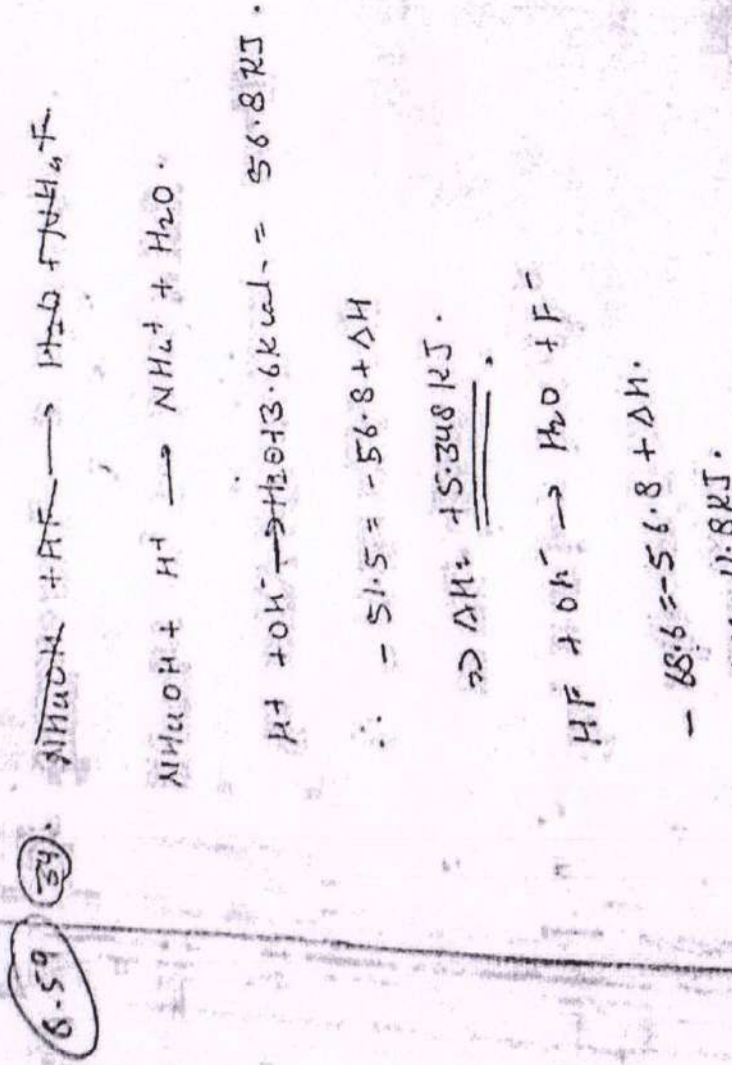 8.59 34. NH4OH + HF → H2O + NH4F
NH4OH + H+ → NH4+ + H2O.
H+ + OH- → H2O + 13.6 kcal. = 56.8 KJ.
∴ - 51.5 = -56.8 + ΔH
⇒ ΔH = +5.348 KJ.
HF + OH- → H2O + F-
- 68.6 = -56.8 + ΔH.
11.8 KJ.